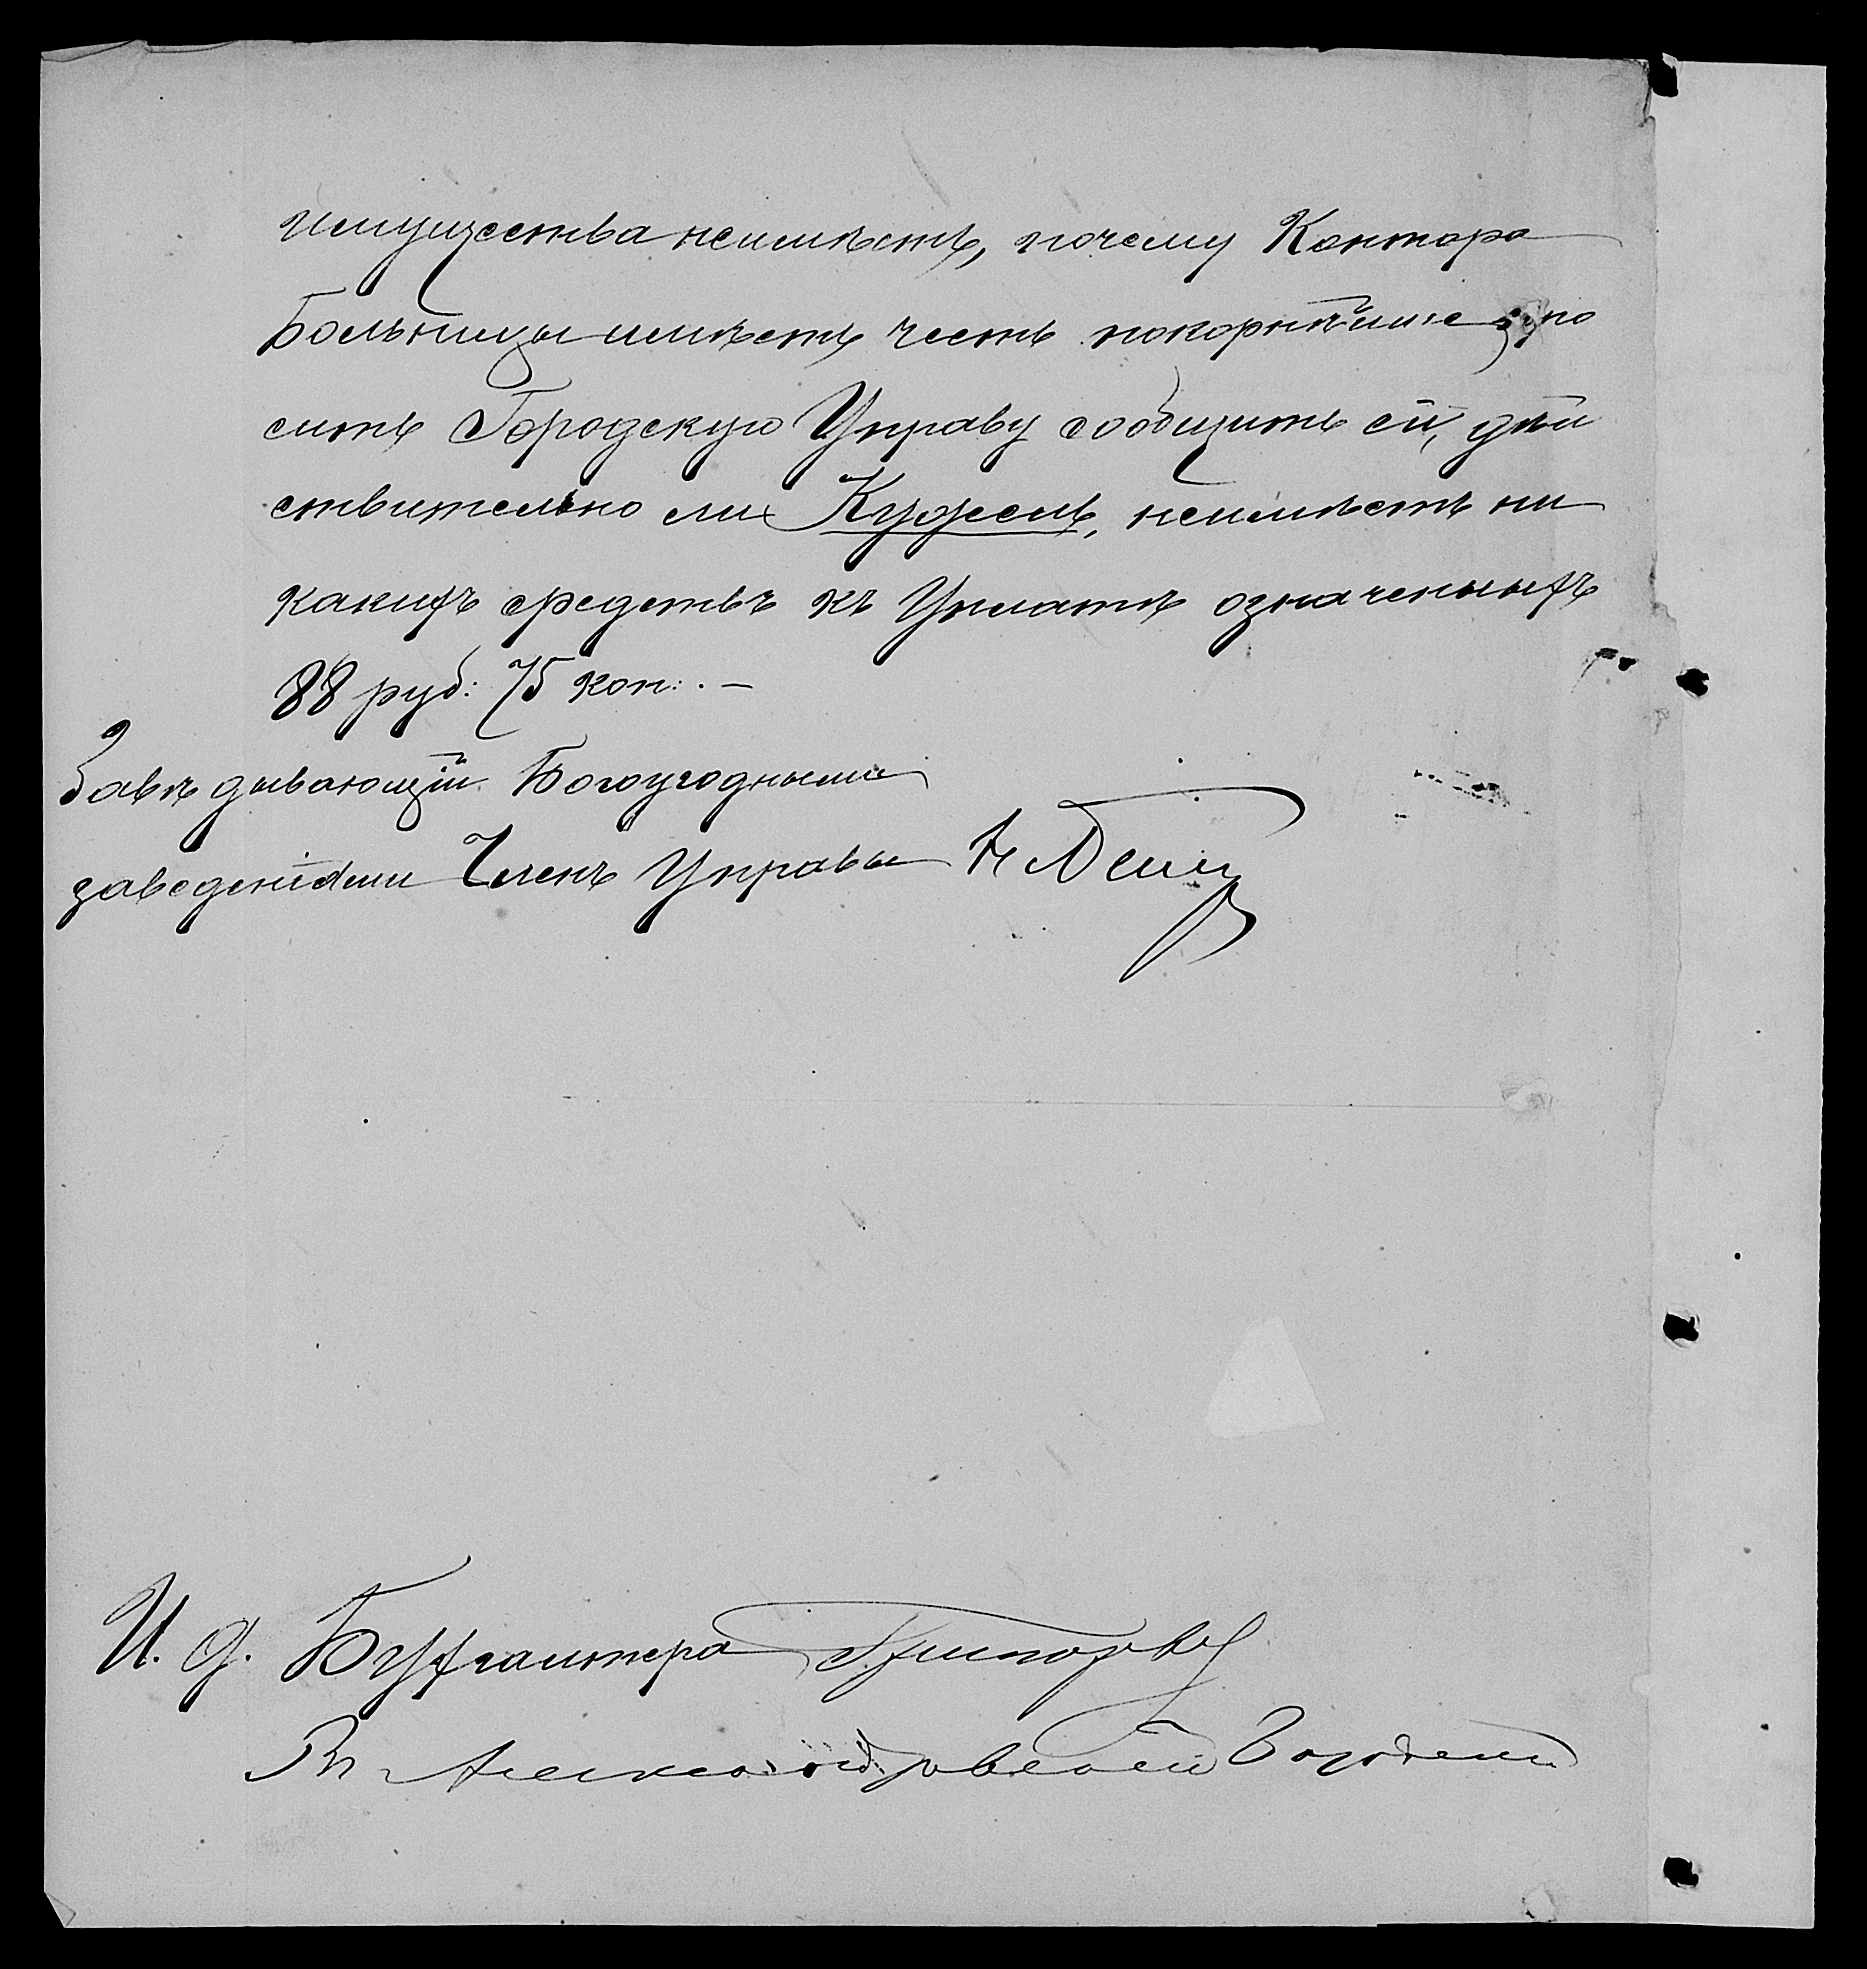 имущества неимѣетъ, почему Контора
Больницы имѣетъ честь покорнѣйше про
сить Городскую Управу сообщить ей, дѣй
ствительно ли неимѣетъ ни
какихъ средствъ къ Уплатѣ означеныхъ
88 руб: 75 коп: . –
Завѣдывающій Богоугодными
заведеніями Членъ Управы
И. д. Бухгалтера
Въ Александровской